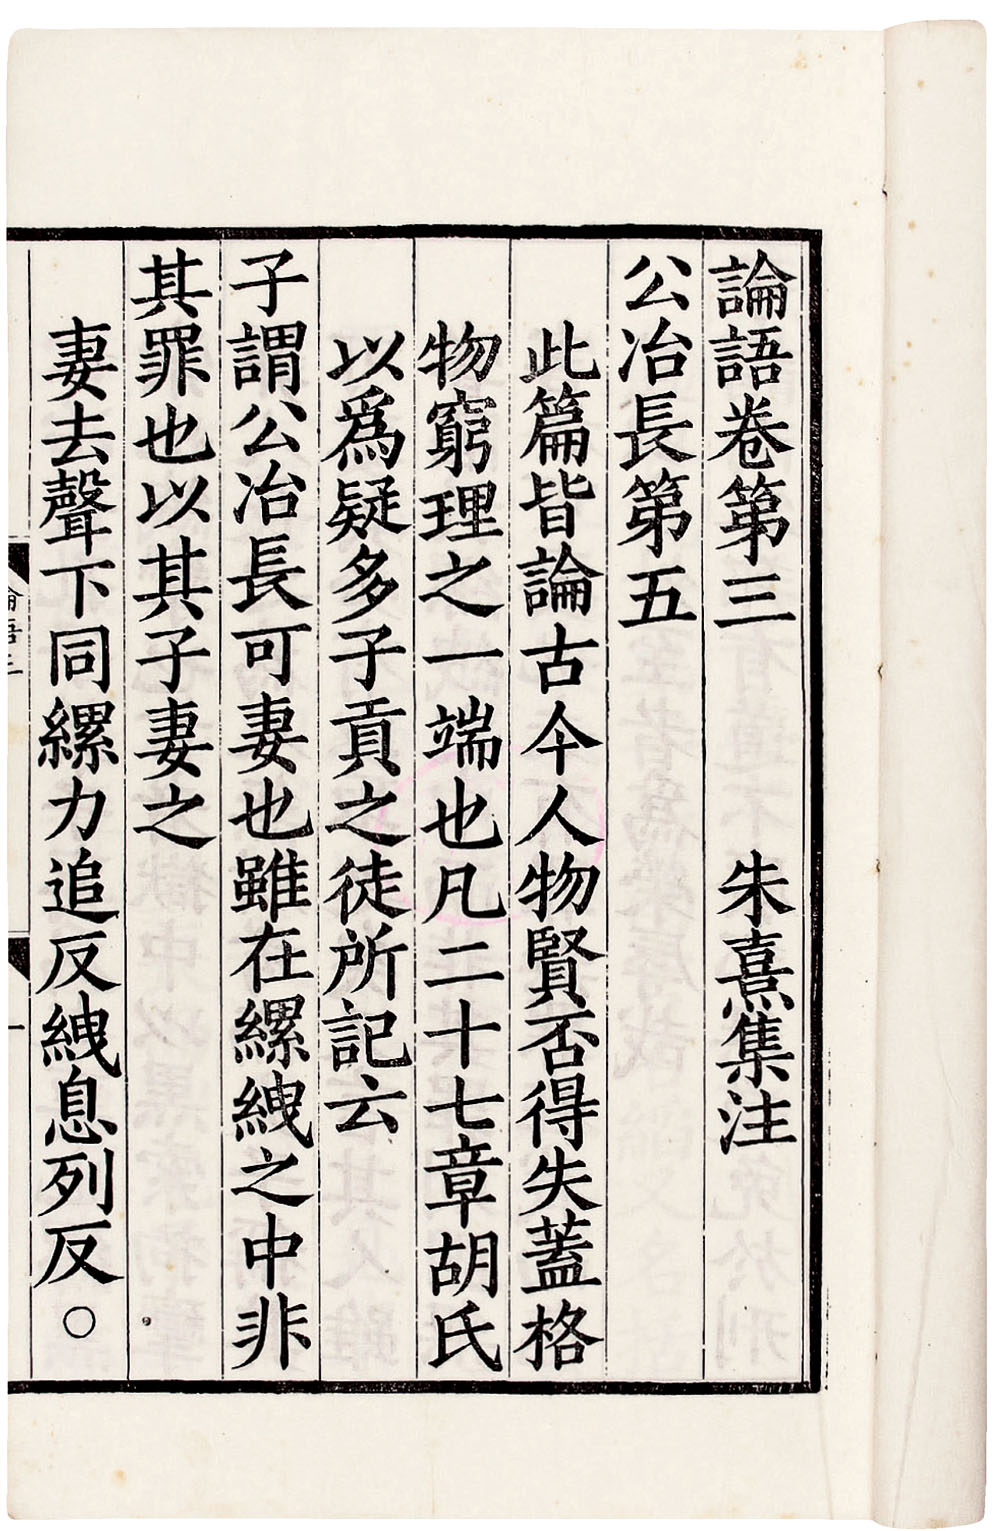 論語卷第三 朱熹集注
公冶長第五
此篇皆論古今人物賢否得失蓋格
物窮理之一端也凡二十七章胡氏
以爲疑多子貢之徒所記云
子謂公冶長可妻也雖在縲絏之中非
其罪也以其子妻之
妻去聲下同縲力追反絏息列反○